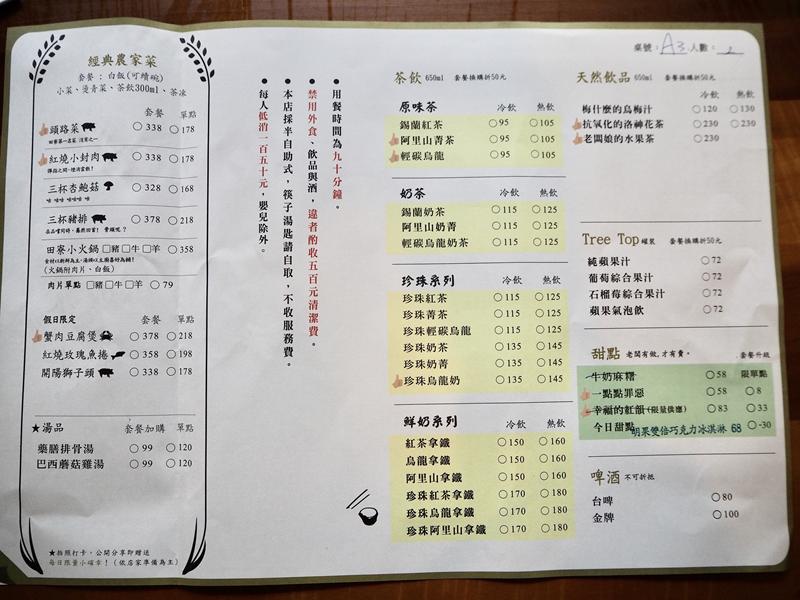 桌號：A3 人數：2
經典農家菜
套餐：白飯(可續碗)
小菜、燙青菜、茶飲300ml、茶凍
套餐 單點
頭路菜 ○338 ○178
田寮第一名菜 清蒸之一
紅燒小封肉 ○338 ○178
三杯杏鮑菇 ○328 ○168
三杯豬排 ○378 ○218
田寮小火鍋 □豬□牛□羊 ○358
(火鍋附肉片、白飯)
肉片單點 □豬□牛□羊 ○79
假日限定 套餐 單點
蟹肉豆腐煲 ○378 ○218
紅燒玫瑰魚捲 ○358 ○198
開陽獅子頭 ○338 ○178
★湯品 套餐加購 單點
藥膳排骨湯 ○99 ○120
巴西蘑菇雞湯 ○99 ○120
★拍照打卡，公開分享即贈送
每日限量小確幸！（依店家準備為主）
●用餐時間為九十分鐘。
●禁用外食、飲品與酒，違者酌收五百元清潔費。
●本店採半自助式，筷子湯匙請自取，不收服務費。
●每人低消一百五十元，嬰兒除外。
茶飲 650ml 套餐換購折50元
原味茶 冷飲 熱飲
錫蘭紅茶 ○95 ○105
阿里山菁茶 ○95 ○105
輕碳烏龍 ○95 ○105
奶茶 冷飲 熱飲
錫蘭奶茶 ○115 ○125
阿里山奶菁 ○115 ○125
輕碳烏龍奶茶 ○115 ○125
珍珠系列 冷飲 熱飲
珍珠紅茶 ○115 ○125
珍珠菁茶 ○115 ○125
珍珠輕碳烏龍 ○115 ○125
珍珠奶茶 ○135 ○145
珍珠奶菁 ○135 ○145
珍珠烏龍奶 ○135 ○145
鮮奶系列 冷飲 熱飲
紅茶拿鐵 ○150 ○160
烏龍拿鐵 ○150 ○160
阿里山拿鐵 ○150 ○160
珍珠紅茶拿鐵 ○170 ○180
珍珠烏龍拿鐵 ○170 ○180
珍珠阿里山拿鐵 ○170 ○180
天然飲品 650ml 套餐換購折50元
冷飲 熱飲
梅什麼的烏梅汁 ○120 ○130
抗氧化的洛神花茶 ○230 ○230
老闆娘的水果茶 ○230
Tree Top 罐裝 套餐換購折50元
純蘋果汁 ○72
葡萄綜合果汁 ○72
石榴莓綜合果汁 ○72
蘋果氣泡飲 ○72
甜點 老闆有做，才有賣。 套餐升級
牛奶麻糬 ○58 限單點
一點點罪惡 ○58 ○8
幸福的紅韻(限量供應) ○83 ○33
今日甜點 明果雙倍巧克力冰淇淋 68 ○-30
啤酒 不可折抵
台啤 ○80
金牌 ○100